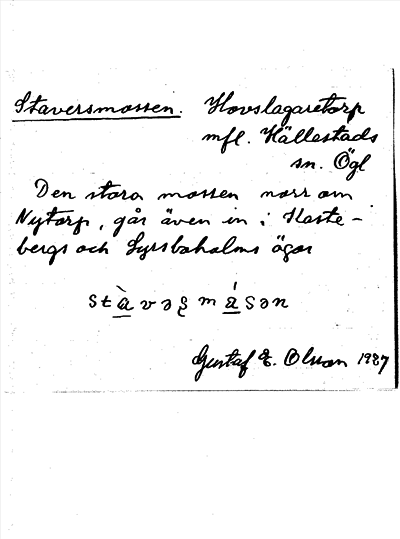 Staversmossen. Hovslagaretorp
mfl. Hällestads
sn. Ögl
Den stora mossen norr om
Nytorp, går även in i Haste-
bergs och Lyrsbaholms ägor
stàvəʂmásən
Gustaf E. Olsson 1987